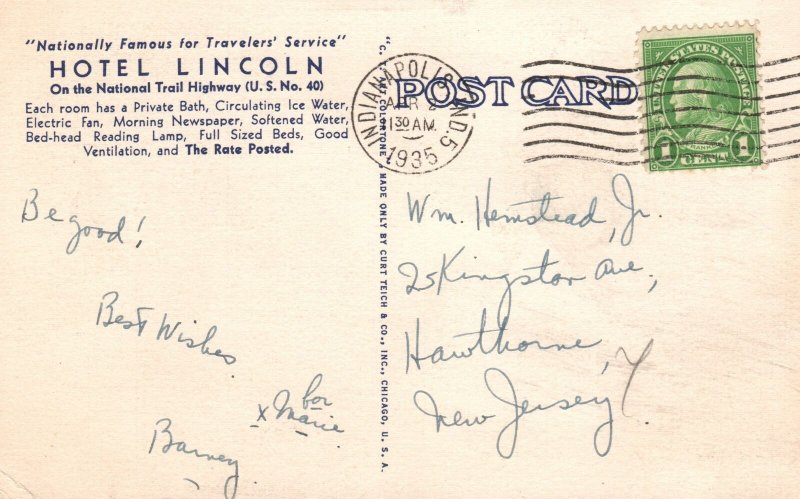 "Nationally Famous for Travelers' Service"
HOTEL LINCOLN
On the National Trail Highway (U. S. No. 40)
Each room has a Private Bath, Circulating Ice Water,
Electric Fan, Morning Newspaper, Softened Water,
Bed-head Reading Lamp, Full Sized Beds, Good
Ventilation, and The Rate Posted.
Be good!
Best Wishes
x for
Marie
Barney
"C. T. ART-COLORTONE" MADE ONLY BY CURT TEICH & CO., INC., CHICAGO, U. S. A.
POST CARD
INDIANAPOLIS, IND. 5
APR 2
1 30 AM
1935
UNITED STATES POSTAGE
FRANKLIN
1 CENT 1
Wm. Hemstead, Jr.
25 Kingston Ave,
Hawthorne,
New Jersey